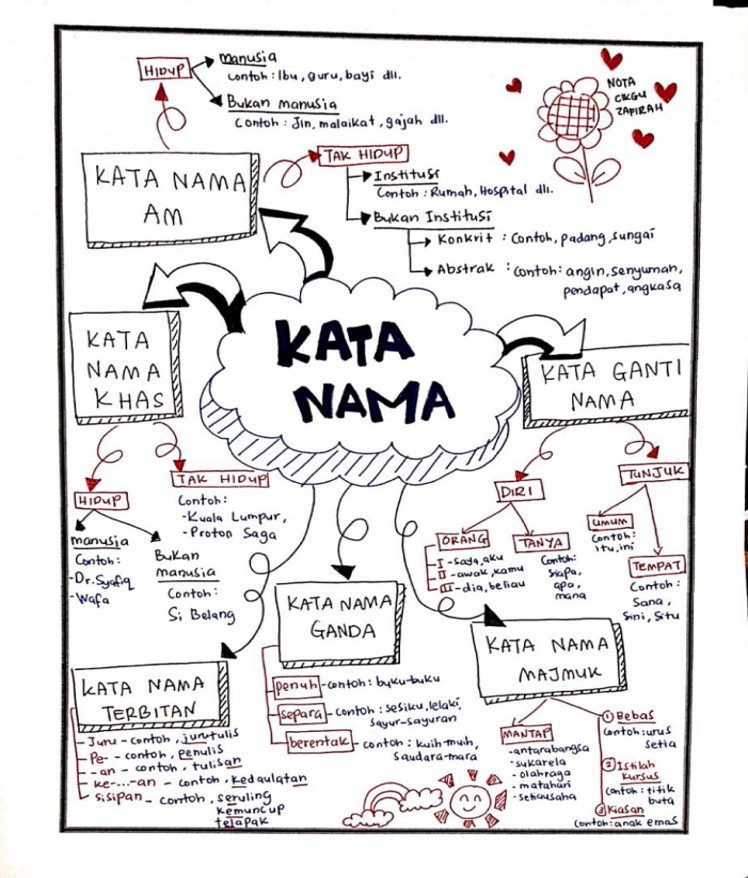 HIDUP
manusia
Contoh: Ibu, guru, bayi dll.
Bukan manusia
Contoh: Jin, malaikat, gajah dll.
NOTA
CIKGU
ZAFIRAH
KATA NAMA
AM
TAK HIDUP
Institusi
Contoh: Rumah, Hospital dll.
Bukan Institusi
Konkrit : Contoh, padang, sungai
Abstrak : Contoh: angin, senyuman,
pendapat, angkasa
KATA
NAMA
KATA
NAMA
KHAS
HIDUP
manusia
Contoh:
-Dr. Syafiq
-Wafa
Bukan
manusia
Contoh:
Si Belang
TAK HIDUP
Contoh:
-Kuala Lumpur,
-Proton Saga
KATA GANTI
NAMA
DIRI
ORANG
I -saya, aku
II -awak, kamu
III -dia, beliau
TANYA
Contoh:
siapa,
apa,
mana
TUNJUK
UMUM
Contoh:
itu, ini
TEMPAT
Contoh:
Sana,
Sini, Situ
KATA NAMA
TERBITAN
- Juru - contoh, jurutulis
- Pe- - contoh, penulis
- -an - contoh, tulisan
- ke-...-an - contoh, kedaulatan
- sisipan - contoh, seruling
kemuncup
telapak
KATA NAMA
GANDA
penuh -contoh: buku-buku
separa -contoh: sesiku, lelaki,
sayur-sayuran
berentak - contoh: kuih-muih,
saudara-mara
KATA NAMA
MAJMUK
MANTAP
-antarabangsa
-sukarela
-olahraga
-matahari
-setiausaha
① Bebas
Contoh: urus
setia
② Istilah
Kursus
Contoh: titik
buta
③ Kiasan
Contoh: anak emas